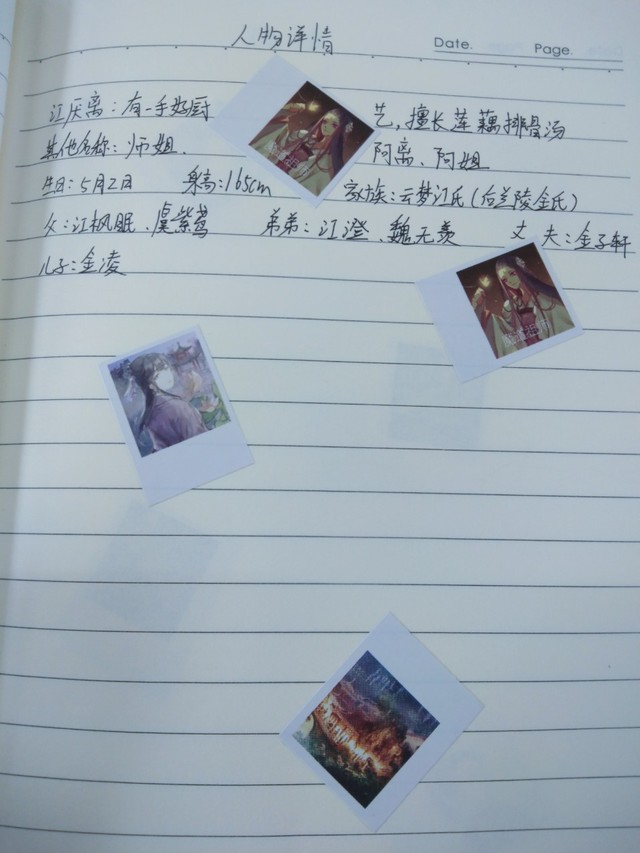 人物详情
Date. Page.
江厌离：有一手好厨艺，擅长莲藕排骨汤
其他名称：师姐、阿离、阿姐
生日：5月2日 身高：165cm 家族：云梦江氏（后兰陵金氏）
父：江枫眠、虞紫鸢 弟弟：江澄、魏无羡 丈夫：金子轩
儿子：金凌